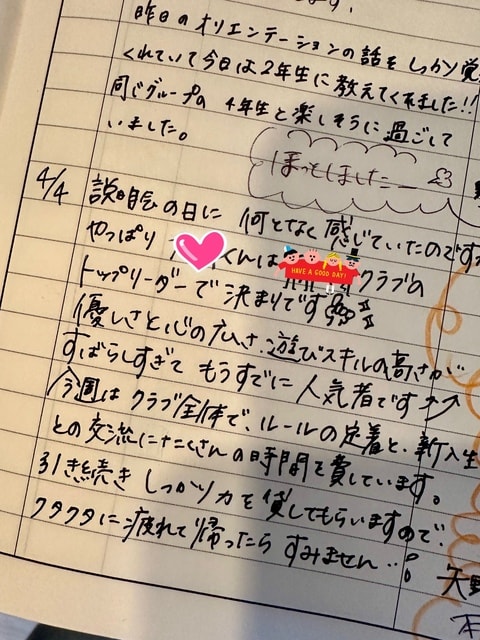 昨日のオリエンテーションの話をしっかり覚
くれていて今日は2年生に教えてくれました!!
同じグループの 4年生と楽しそうに過ごして
いました。
ほっとしました
4/4 説明会の日に 何となく感じていたのです
やっぱり くんは クラブの
HAVE A GOOD DAY!
トップリーダーで決まりです
優しさと心の広さ、遊びスキルの高さが
すばらしすぎて もうすでに人気者です
今週はクラブ全体で、ルールの定着と、新入生
との交流にたくさんの時間を費しています。
引き続き しっかり力を貸してもらいますので、
クタクタに疲れて帰ったら すみません…
矢野